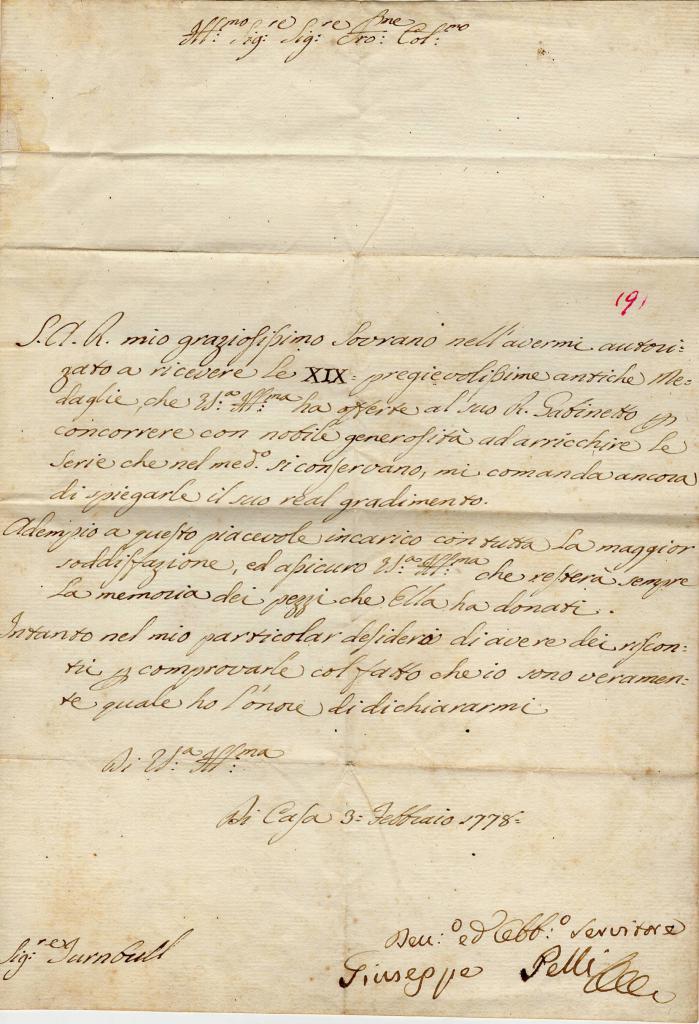 Ill:mo Sig:re Sig:re Pro:ne Col:mo
191
S.A.R. mio graziosissimo Sovrano nell'avermi autori:
zato a ricevere le XIX: pregievolissime antiche Me:
daglie, che VS:a Ill:ma ha offerte al suo R. Gabinetto p
concorrere con nobile generosità ad arricchire le
serie che nel med:o si conservano, mi comanda ancora
di spiegarle il suo real gradimento.
Adempio a questo piacevole incarico con tutta la maggior
soddisfazione, ed assicuro VS:a Ill:ma che resterà sempre
la memoria dei pezzi che Ella ha donati.
Intanto nel mio particolar desidero di avere dei riscon:
tri p comprovarle col fatto che io sono veramen:
te quale ho l'onore di dichiararmi
Di VS:a Ill:ma
Di Casa 3: Febbraio 1778:
Dev:o ed Obb:o Servitore
Sig:re Turnbull
Giuseppe Pelli